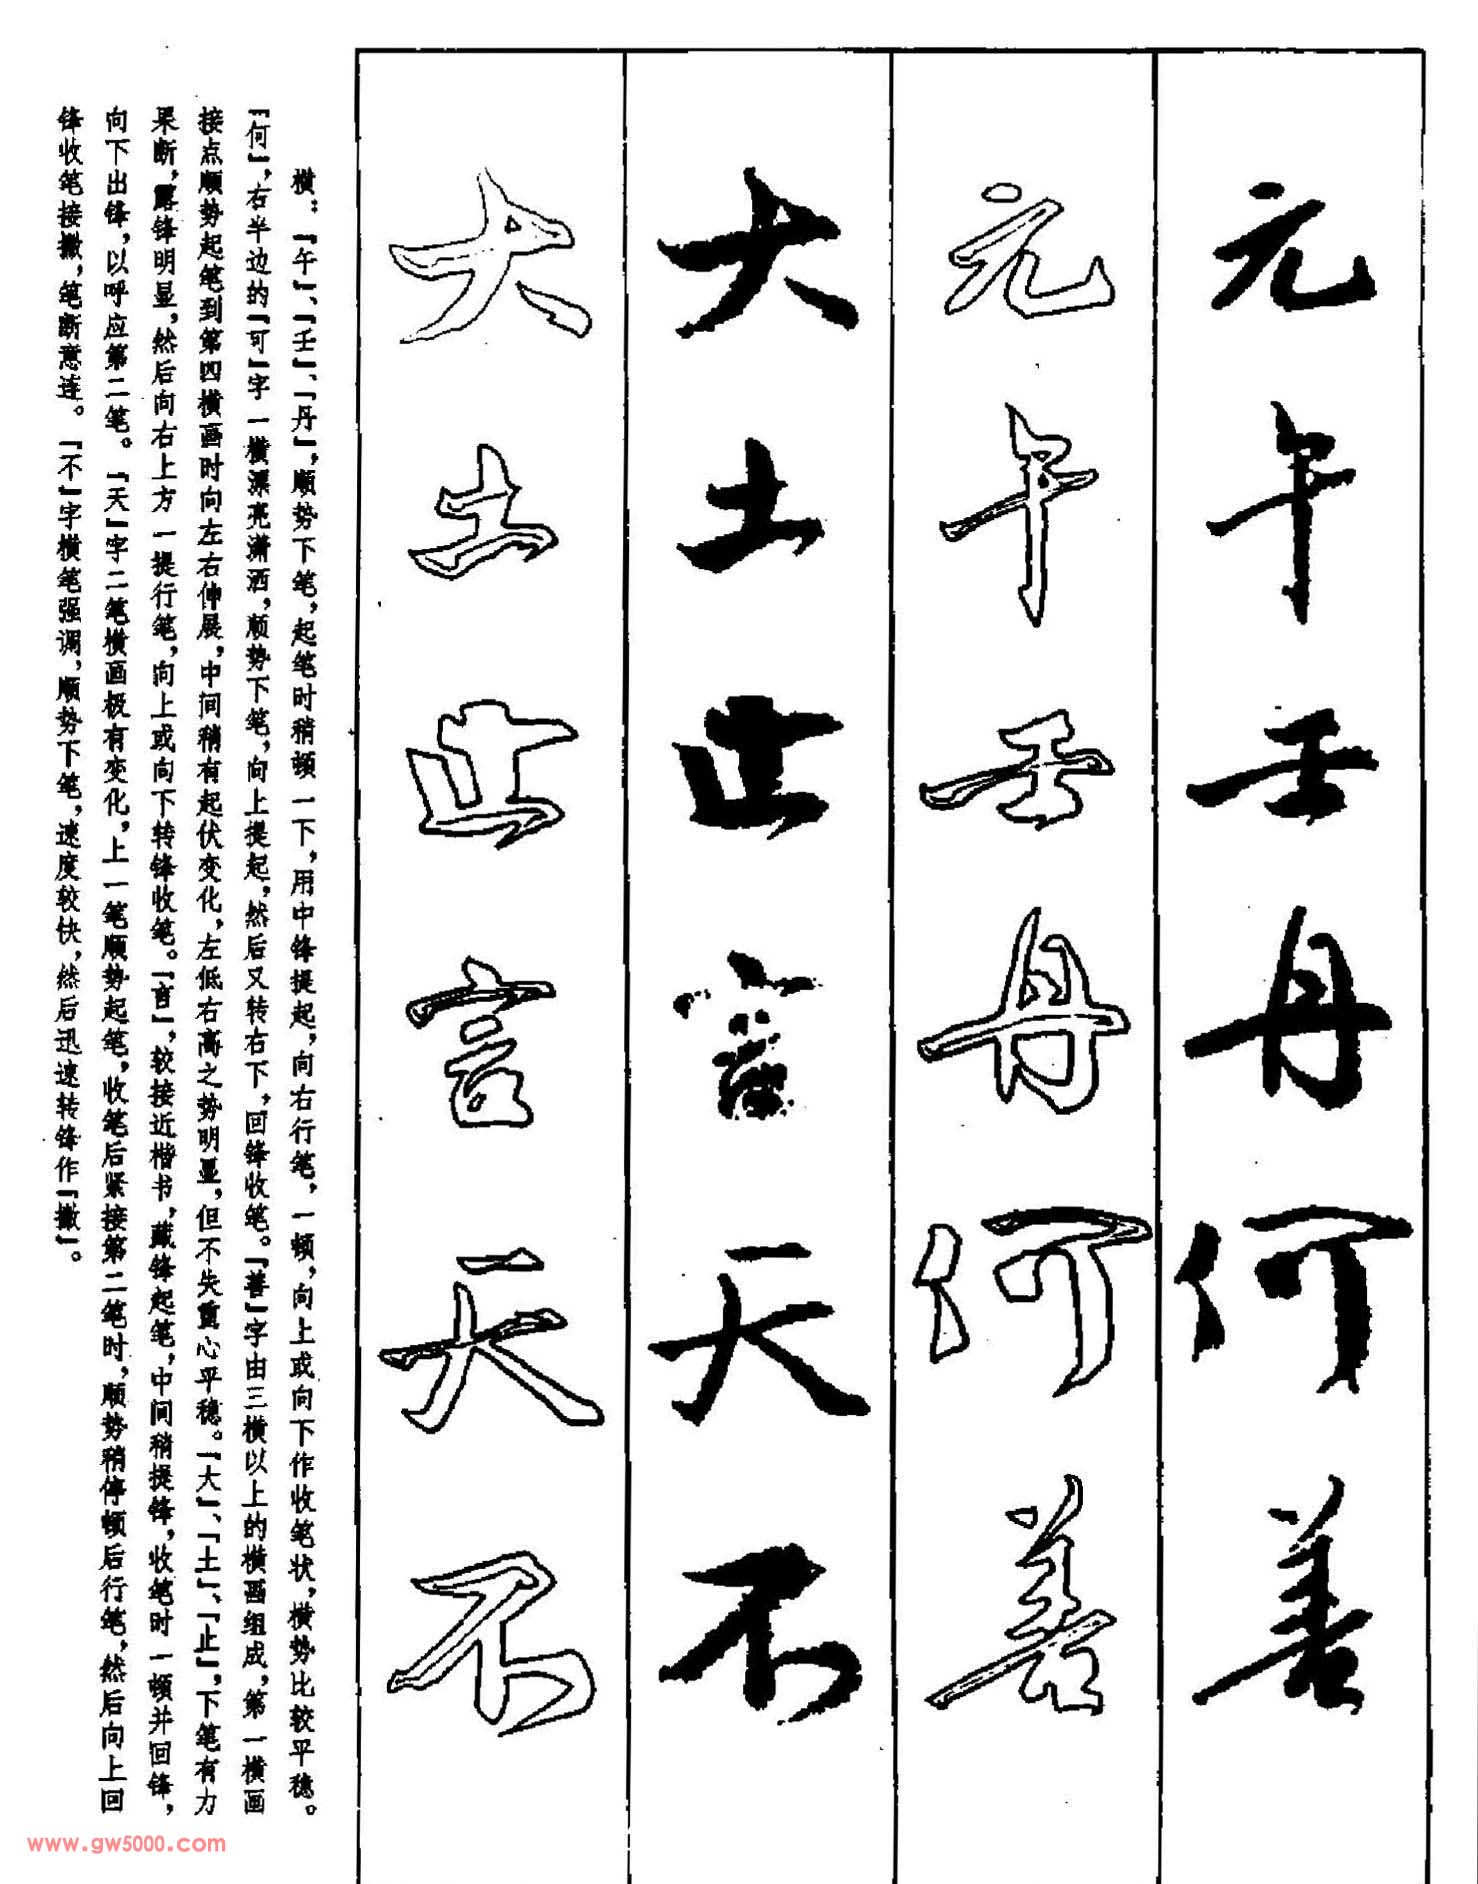 元午壬丹何善
元午壬丹何善
大土止言天不
大土止言天不
横：「午」、「壬」、「丹」，顺势下笔，起笔时稍顿一下，用中锋提起，向右行笔，一顿，向上或向下作收笔状，横势比较平稳。
「何」，右半边的「可」字一横漂亮潇洒，顺势下笔，向上提起，然后又转右下，回锋收笔。「善」字由三横以上的横画组成，第一横画
接点顺势起笔到第四横画时向左右伸展，中间稍有起伏变化，左低右高之势明显，但不失重心平稳。「大」、「土」、「止」，下笔有力
果断，露锋明显，然后向右上方一提行笔，向上或向下转锋收笔。「言」，较接近楷书，藏锋起笔，中间稍提锋，收笔时一顿并回锋，
向下出锋，以呼应第二笔。「天」字二笔横画极有变化，上一笔顺势起笔，收笔后紧接第二笔时，顺势稍停顿后行笔，然后向上回
锋收笔接撇，笔断意连。「不」字横笔强调，顺势下笔，速度较快，然后迅速转锋作「撇」。
www.gw5000.com